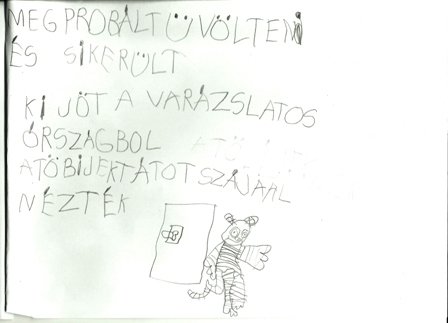 MEGPROBÁLT ÜVÖLTENI
ÉS SIKERÜLT
KI JÖT A VARÁZSLATOS
ÓRSZÁGBOL
ATÖBIJEKTÁTOT SZÁJAAL
NÉZTÉK